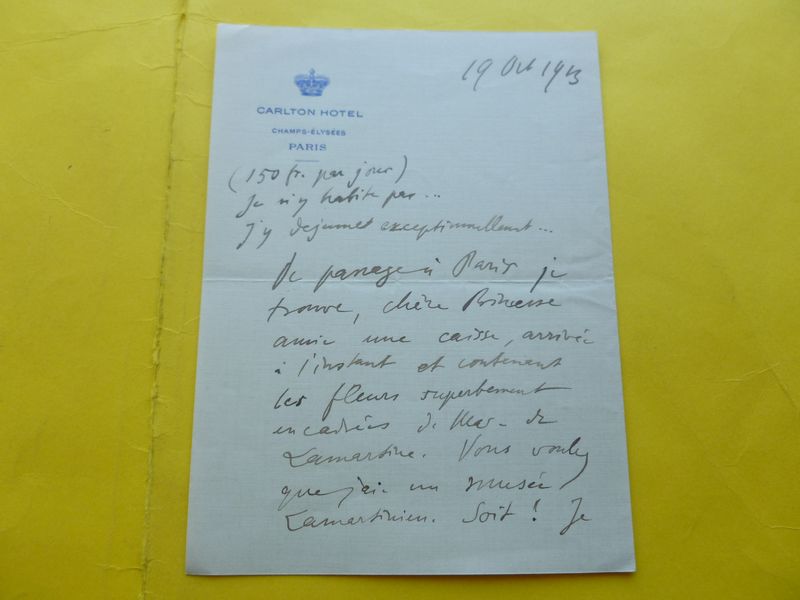 19 Oct 1913
CARLTON HOTEL
CHAMPS-ÉLYSÉES
PARIS
(150 fr. par jour)
Je n'y habite pas...
J'y dejeunet exceptionnellement...
De passage à Paris je
trouve, chère Princesse
amie une caisse, arrivée
à l'instant et contenant
les fleurs superbement
encadrées de de
Lamartine. Vous voulez
que j'aie un musée
Lamartinien. Soit! Je